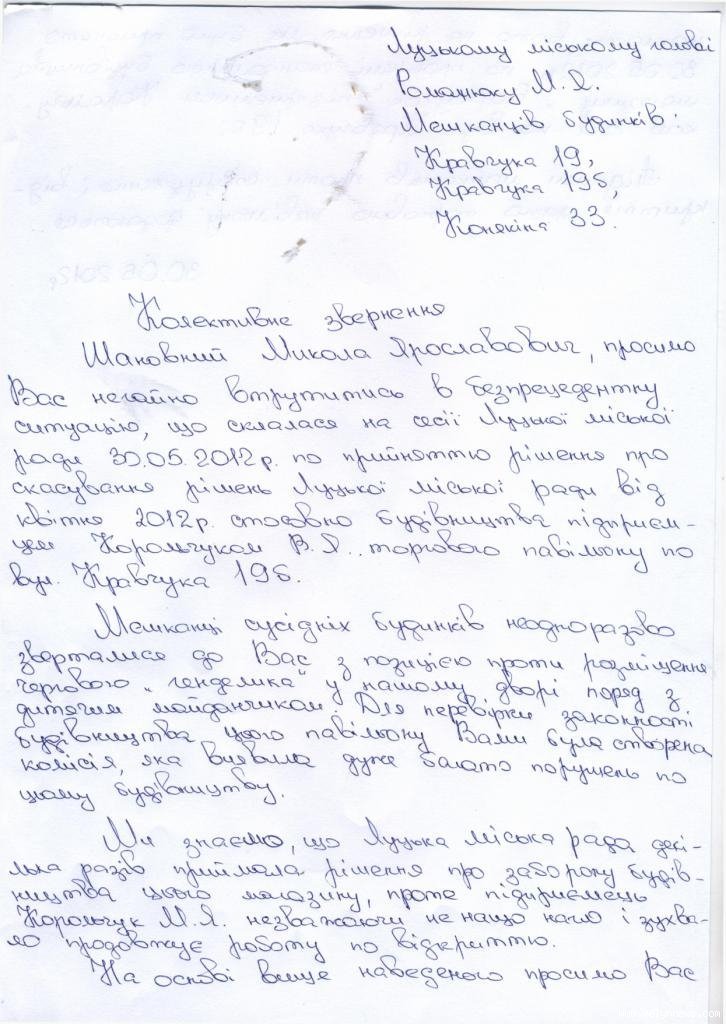 Луцькому міському голові
Романюку М. Я.
Мешканців будинків:
Кравчука 19,
Кравчука 19б,
Конякіна 33.
Колективне звернення
Шановний Микола Ярославович, просимо
Вас негайно втрутитись в безпрецедентну
ситуацію, що склалася на сесії Луцької міської
ради 30.05.2012р. по прийняттю рішення про
скасування рішень Луцької міської ради від
квітня 2012р. стосовно будівництва підприєм-
цем Корольчуком В.Я. торгового павільону по
вул. Кравчука 19б.
Мешканці сусідніх будинків неодноразово
зверталися до Вас з позицією проти розміщення
чергового "генделика" у нашому дворі поряд з
дитячим майданчиком. Для перевірки законності
будівництва цього павільону Вами була створена
комісія, яка виявила дуже багато порушень по
цьому будівництву.
Ми знаємо, що Луцька міська рада декі-
лька разів приймала рішення про заборону будів-
ництва цього магазину, проте підприємець
Корольчук М.Я. незважаючи не нащо нагло і зухва-
ло продовжує роботу по відкриттю.
На основі вище наведеного просимо Вас